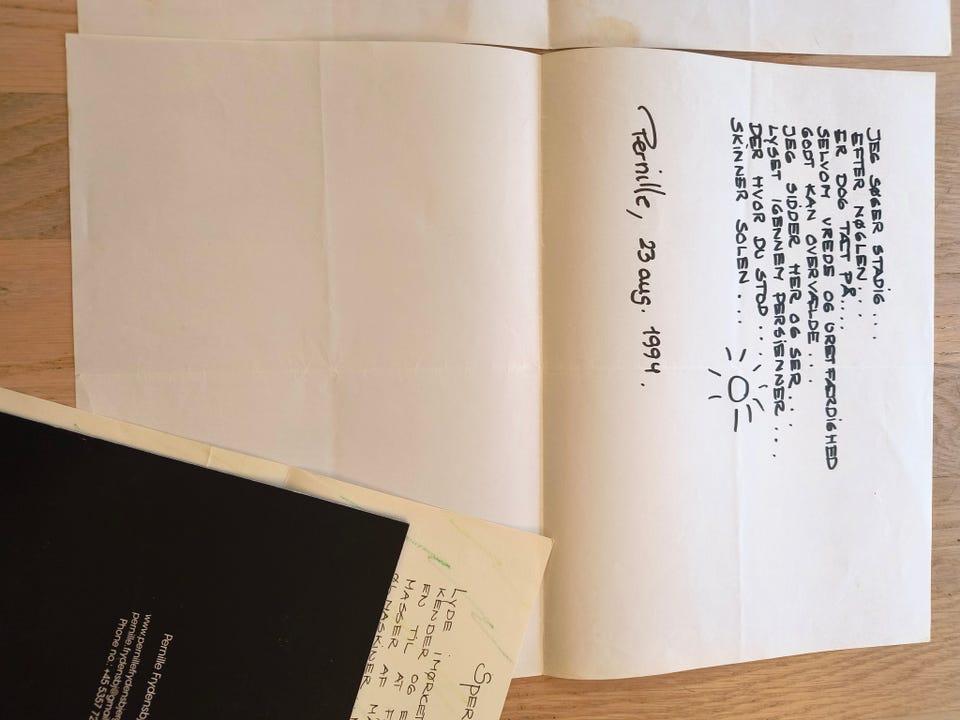 JEG SØGER STADIG...
EFTER NØGLEN...
ER DOG TÆT PÅ....
SELVOM VREDE OG URETFÆRDIGHED
GODT KAN OVERVÆLDE...
JEG SIDDER HER OG SER...
LYSET IGENNEM PERSIENNER...
DER HVOR DU STOD....
SKINNER SOLEN...
Pernille, 23 aug. 1994.
SPER
LYDE IMØRKET
KENDER
EN TIL OG
MASSER AT
MASKINER
Pernille Frydensb
www.pernillefrydensbjer
pernille.frydensb@gmai
Phone no.: +45 5357 72